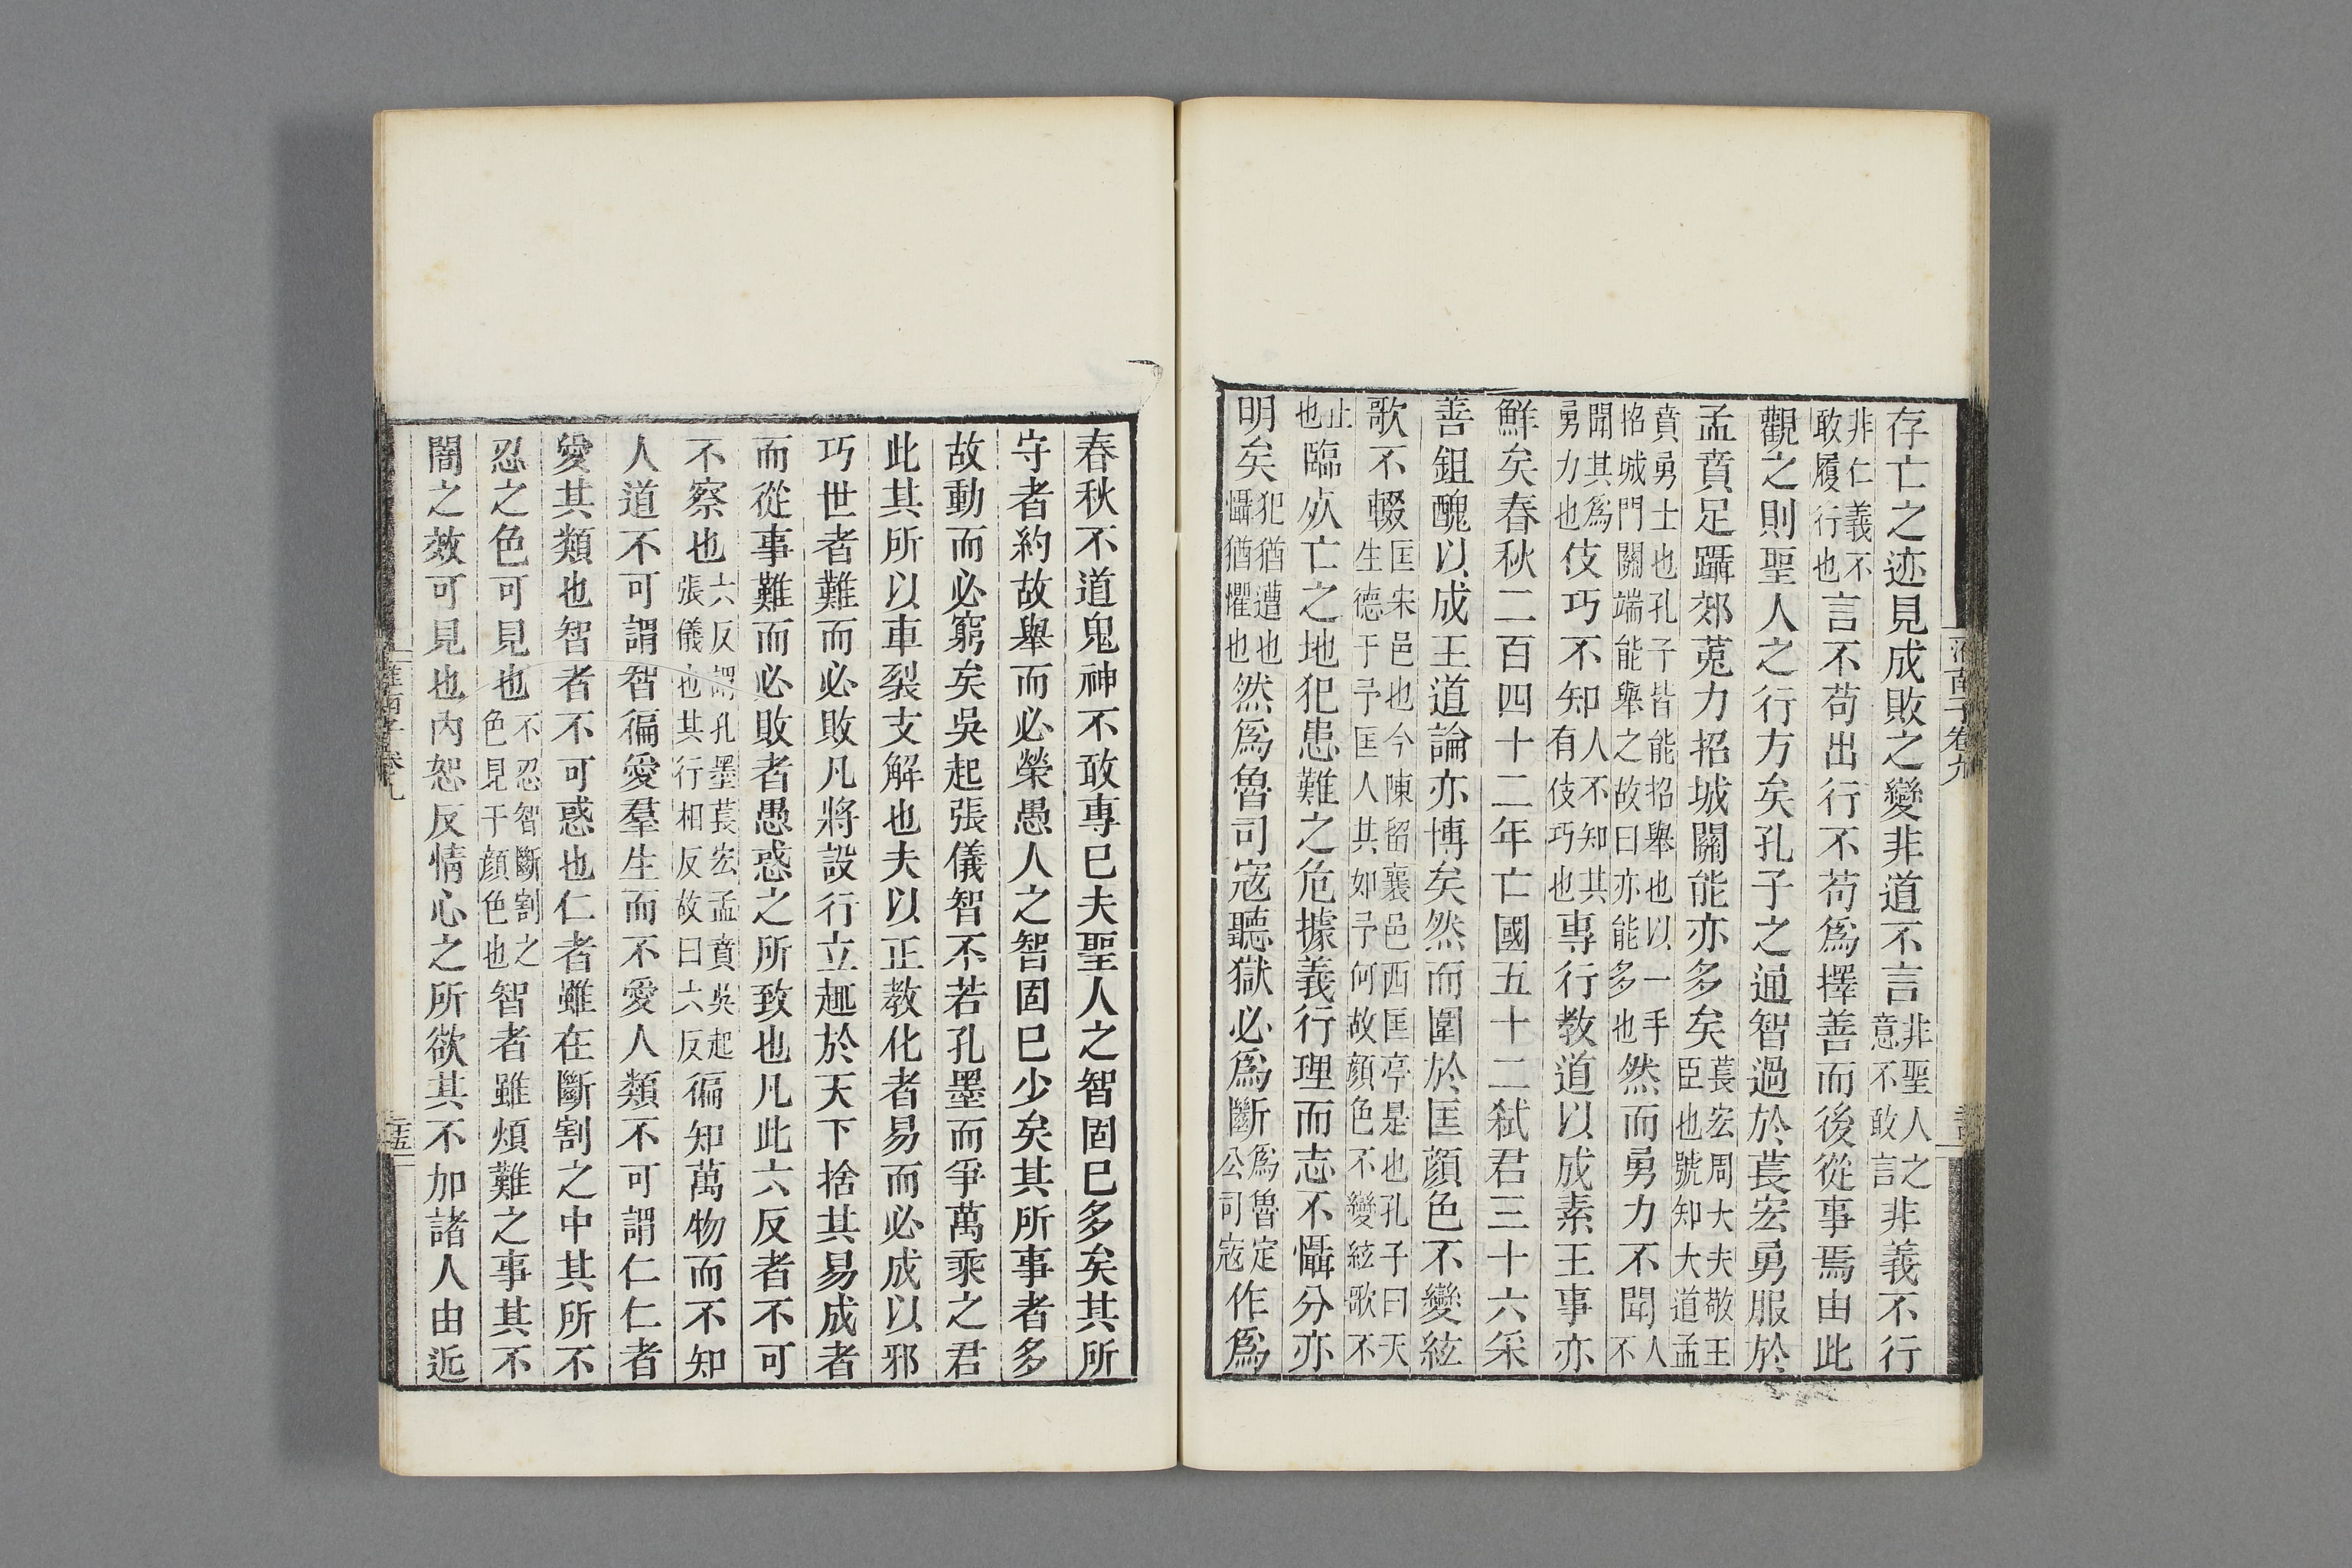 存亡之迹見成敗之變非道不言非聖人之意不敢言非義不行
非仁義不敢履行也言不苟出行不苟爲擇善而後從事焉由此
觀之則聖人之行方矣孔子之通智過於萇宏勇服於
孟賁足躡郊菟力招城關能亦多矣萇宏周大夫敬王臣也號知大道孟
賁勇士也孔子皆能招舉也以一手招城門關端能舉之故曰亦能多也然而勇力不聞人不
聞其爲勇力也伎巧不知人不知其有伎巧也專行教道以成素王事亦
鮮矣春秋二百四十二年亡國五十二弒君三十六采
善鉏醜以成王道論亦博矣然而圍於匡顔色不變絃
歌不輟匡宋邑也今陳留襄邑西匡亭是也孔子曰天生德于予匡人其如予何故顔色不變絃歌不
止也臨死亡之地犯患難之危據義行理而志不懾分亦
明矣犯猶遭也懾猶懼也然爲魯司寇聽獄必爲斷爲魯定公司寇作爲
淮南子卷九
春秋不道鬼神不敢專已夫聖人之智固已多矣其所
守者約故舉而必榮愚人之智固已少矣其所事者多
故動而必窮矣吳起張儀智不若孔墨而爭萬乘之君
此其所以車裂支解也夫以正教化者易而必成以邪
巧世者難而必敗凡將設行立趣於天下捨其易成者
而從事難而必敗者愚惑之所致也凡此六反者不可
不察也六反謂孔墨萇宏孟賁吳起張儀也其行相反故曰六反徧知萬物而不知
人道不可謂智徧愛羣生而不愛人類不可謂仁仁者
愛其類也智者不可惑也仁者雖在斷割之中其所不
忍之色可見也不忍智斷割之色見于顔色也智者雖煩難之事其不
闇之效可見也內恕反情心之所欲其不加諸人由近
淮南子卷九